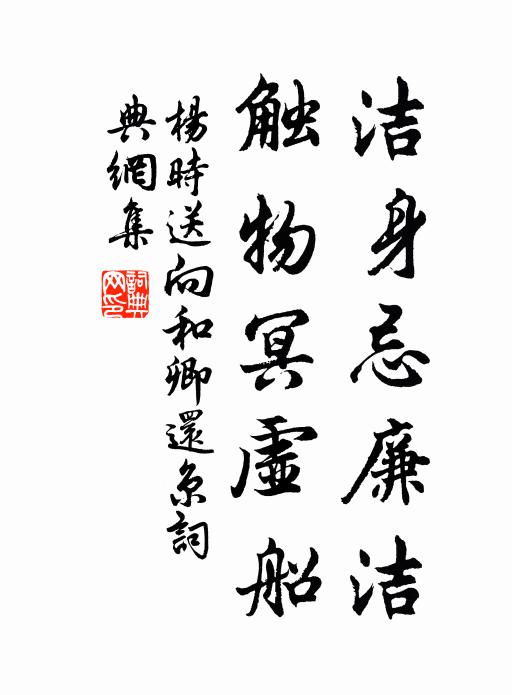 洁身忌廉洁
触物冥虚船
楊時送向和卿還京詞
典網集
詞典网印